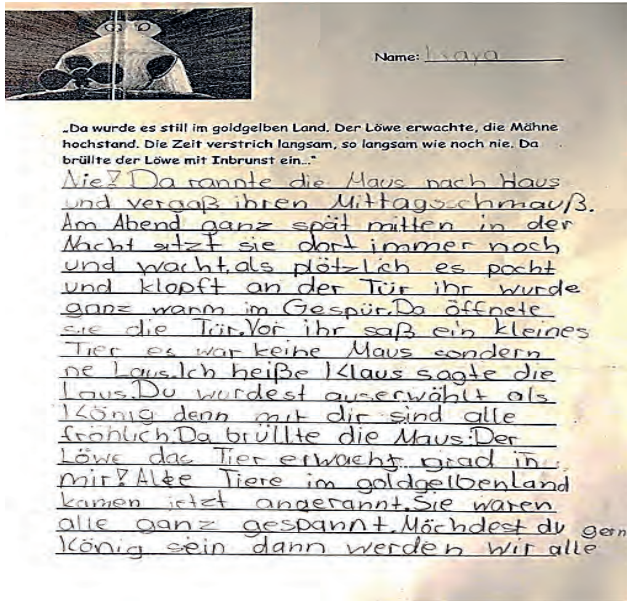 Name: Maya
„Da wurde es still im goldgelben Land. Der Löwe erwachte, die Mähne
hochstand. Die Zeit verstrich langsam, so langsam wie noch nie. Da
brüllte der Löwe mit Inbrunst ein...“
Nie! Da rannte die Maus nach Haus
und vergaß ihren Mittagsschmauß.
Am Abend ganz spät mitten in der
Nacht sitzt sie dort immer noch
und wacht, als plötzlich es pocht
und klopft an der Tür ihr wurde
ganz warm im Gespür. Da öffnete
sie die Tür. Vor ihr saß ein kleines
Tier es war keine Maus sondern
ne Laus. Ich heiße Klaus sagte die
Laus. Du wurdest auserwählt als
König denn mit dir sind alle
fröhlich. Da brüllte die Maus: Der
Löwe das Tier erwacht grad in
mir! Alle Tiere im goldgelbenland
kamen jetzt angerannt. Sie waren
alle ganz gespannt. Möchdest du gern
König sein dann werden wir alle